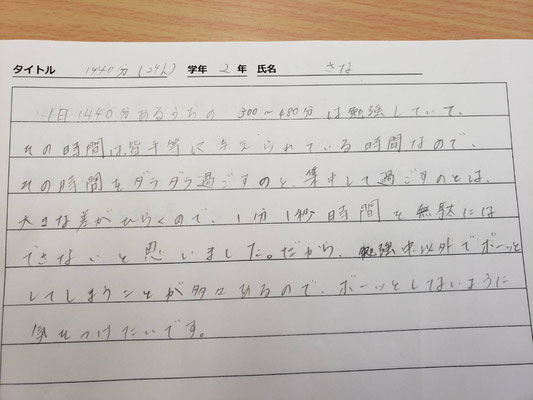 タイトル 1440分(24h) 学年 2年 氏名 さな
1日1440分あるうちの 300~480分は勉強していて、
その時間は皆平等に与えられている時間なので、
その時間をダラダラ過ごすのと、集中して過ごすのとは、
大きな差がひらくので、1分1秒時間を無駄には
できないと思いました。だから、勉強中以外でボーッと
してしまうことが多々あるので、ボーッとしないように
気をつけたいです。